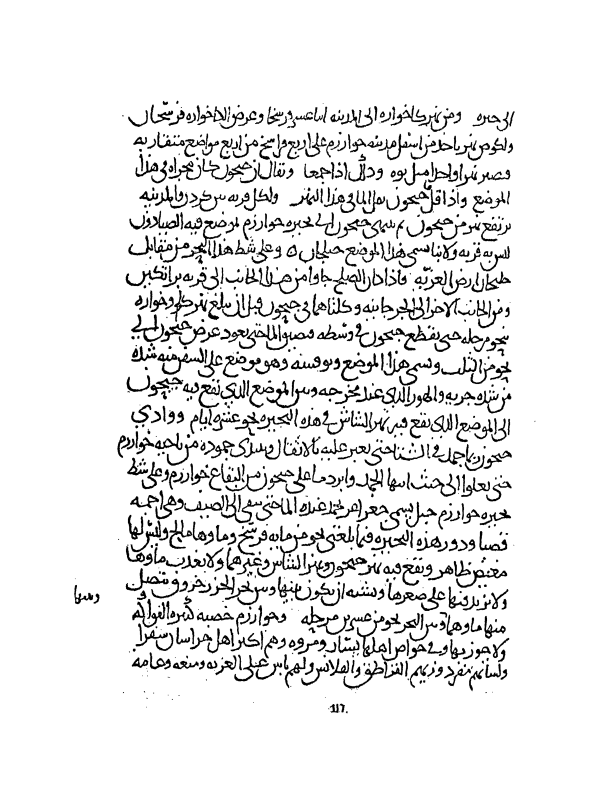 الى خيره ومن نهر كاخواره الى المدينه اثنا عشر فرسخا وعرض الاخواره فرسخان
ولكوهن نهر ياخذ من اسفل مدينه خوارزم على اربع فراسخ من اربع مواضع متقاربه
فصير نهرا واحدا مثل بوه ووداك اذا جمعا ويقال ان جيحون كان مجراه في هذا
الموضع واذا قل جيحون قل الما في هذا النهر ولكل قريه بين كردر والمدينه
نهر من جيحون ثم ينتهي جيحون الى بحيره خوارزم لموضع فيه الصيادون
ليس به قريه ولا بنا يسمى هذا الموضع خليجان وعلى شط هذا البحر من مقابل
خليجان ارض الغزيه فاذا كان الصلح جاوا من هذا الجانب الى قريه براتكين
ومن الجانب الاخر الى الجرجانيه وكلتاهما في جيحون قبل ان يبلغ نهر كاوخواره
نحو مرحله حتى يقطع جيحون في وسطه فضيق الما حتى يعود عرض جيحون الى
نحو من الثلث ويسمى هذا الموضع وهو موضع على السفن منه شده
من شده جريه والهور الذي عند مخرجه وبين الموضع الذي تقع فيه جيحون
الى الموضع الذي تقع فيه نهر الشاش في هذه البحيره نحو عشره ايام ووادي
جيحون ربما جمد في الشتا حتى تعبر عليه الاثقال ويبتدى جموده من ناحيه خوارزم
حتى يعلوا الى حيث انتها الجمد وابرد ما على جيحون من البقاع خوارزم وعلى شط
بحيره خوارزم جبل يسمى جغراغز يجمد عنده الما حتى يبقى الى الصيف وهى اجمه
قصبا ودور هذه البحيره فيما بلغنى نحو من مايه فرسخ وماوها مالح وليس لها
مغيض ظاهر ويقع فيه نهر جيحون ونهر الشاش وغيرهما ولا يعذب ماوها
ولا يزيد فيها على صغرها ويشبه ان يكون بينها وبين بحر الخزر خروق يتصل
منها ماوهما وبين البحرين نحو من عشرين مرحله وخوارزم خصبه كثيره الفواكه
ولا جوز بها وفي خواص اهلها يسار ومروه وهم اكثر اهل خراسان سفرا
ولسانهم منفرد وزيهم القراطق والقلانس ولهم باس على الغزيه ومنعه وعامه
117.